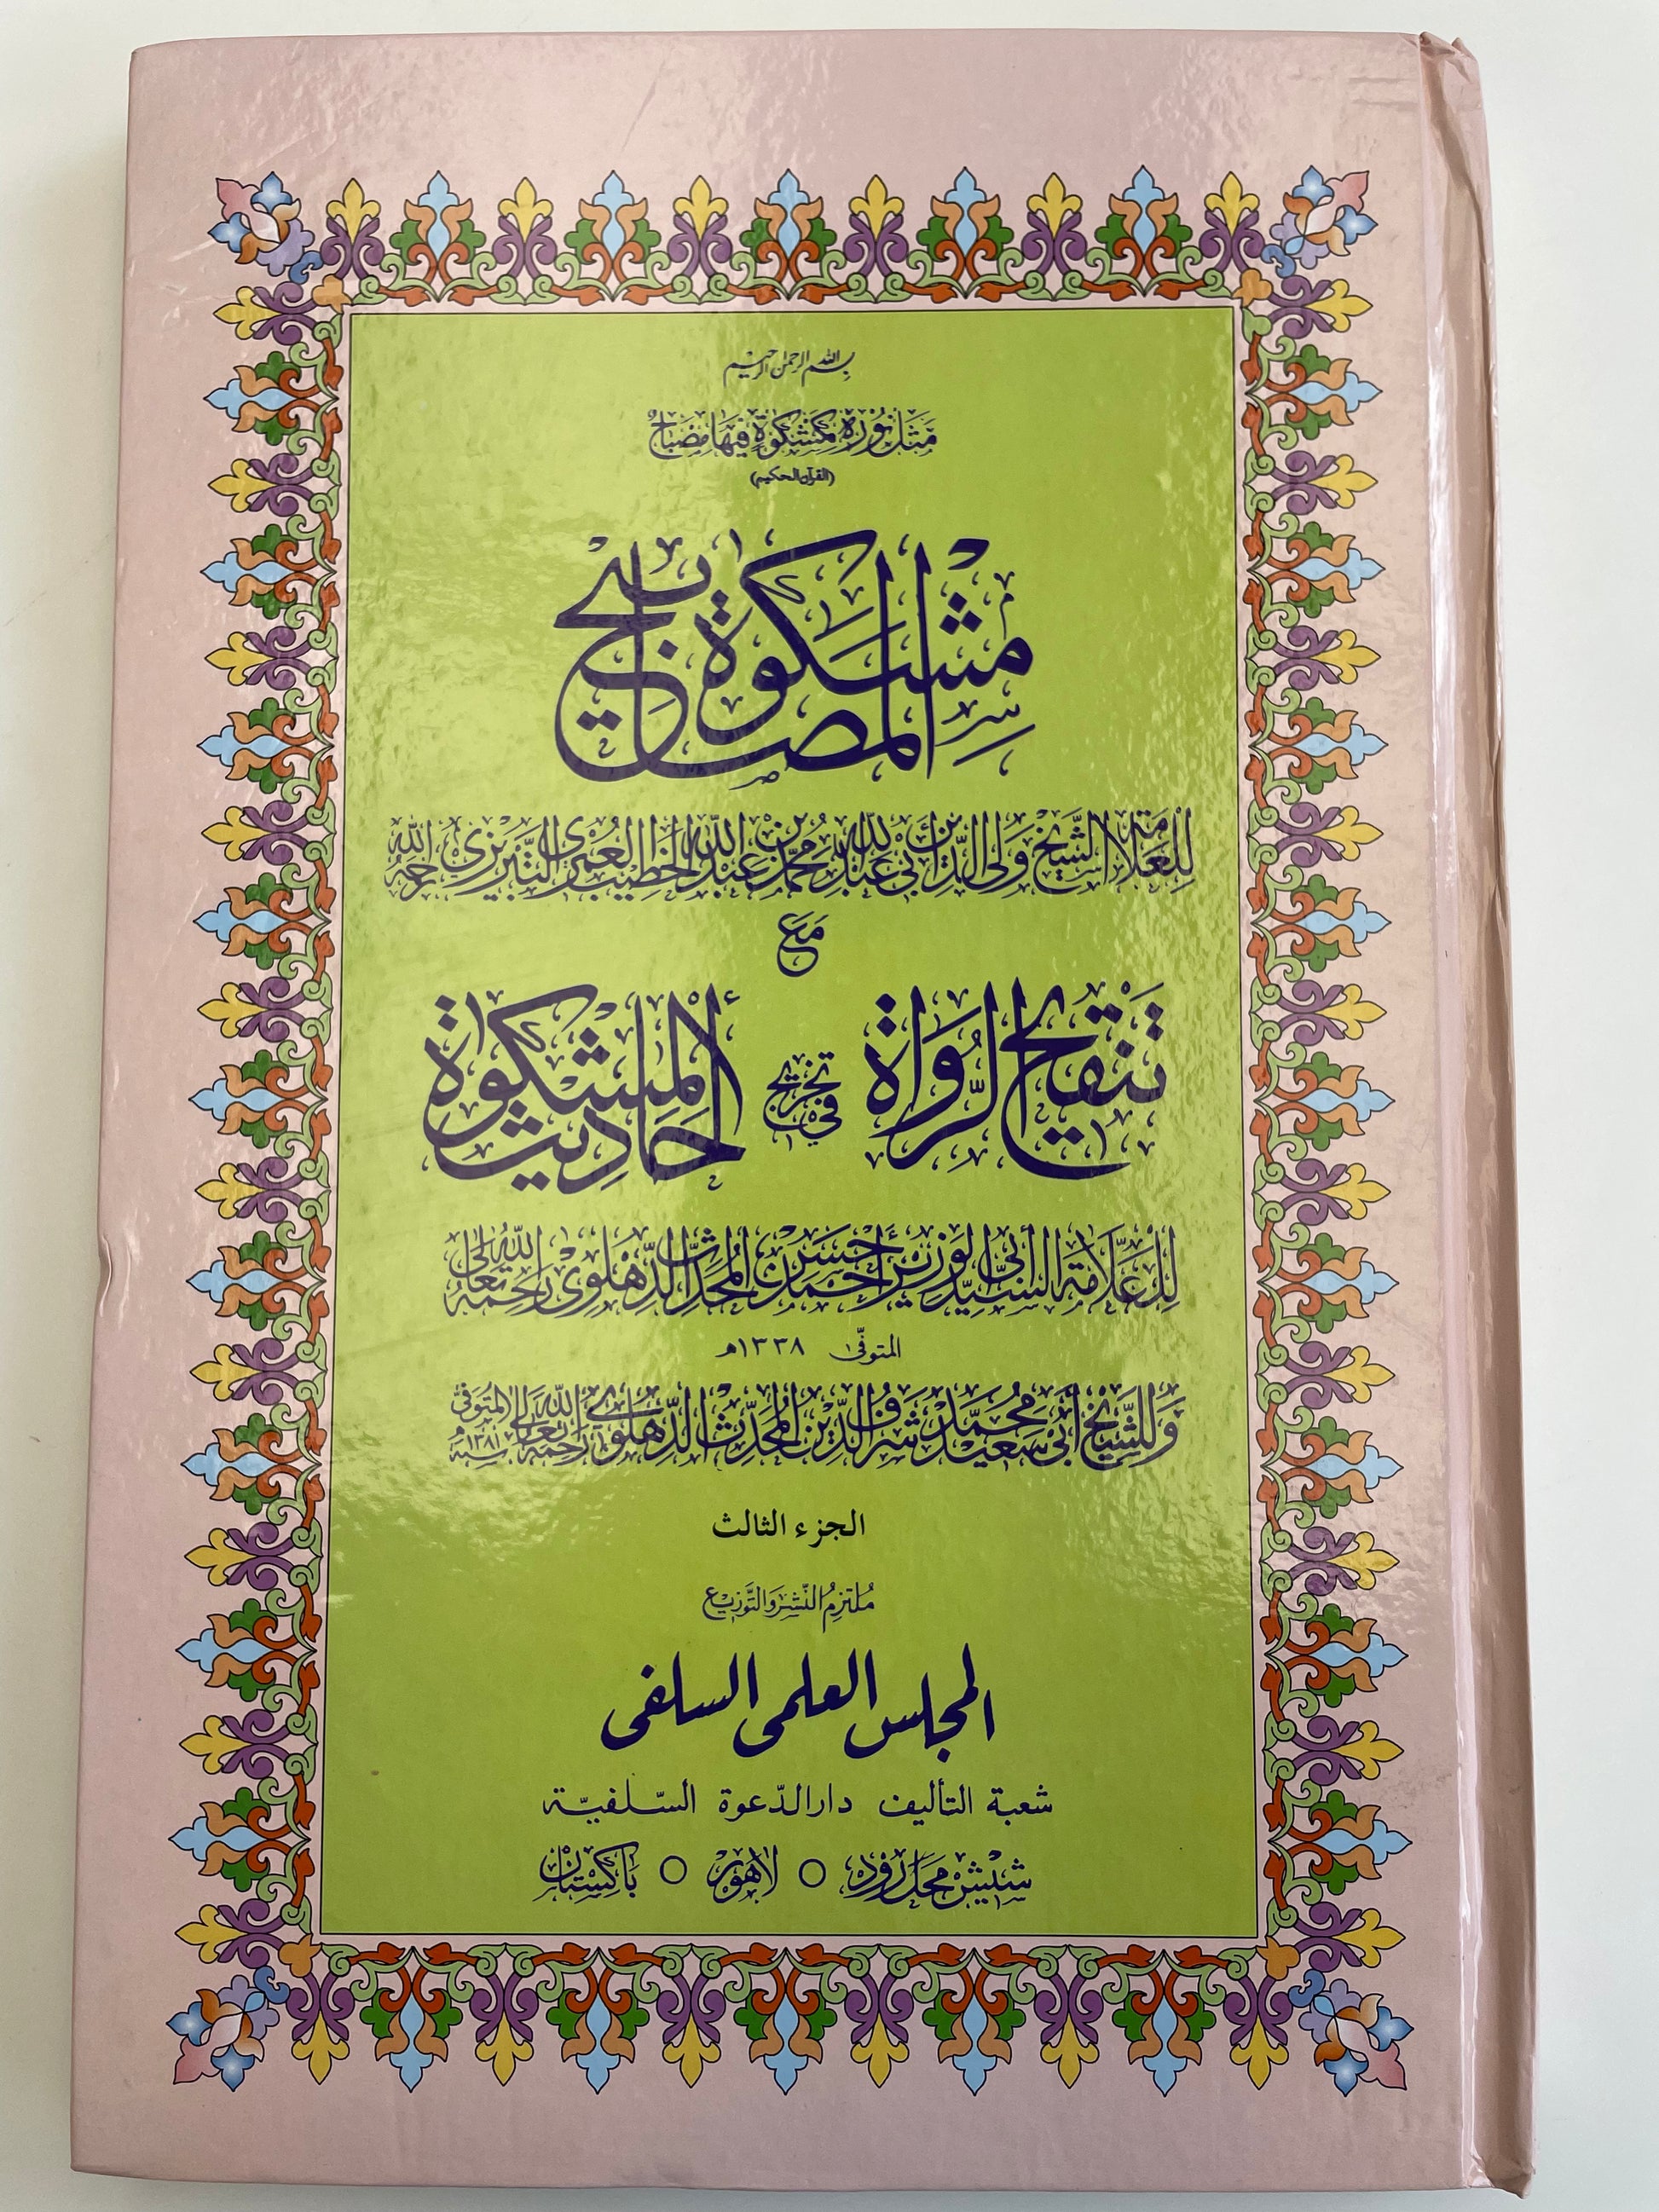 بسم الله الرحمن الرحیم
مَثَلُ نُوْرِهٖ كَمِشْكٰوةٍ فِيْهَا مِصْبَاحٌ
(القرآن الحکیم)
مِشْكٰوةُ الْمَصَابِيْحِ
لِلْعَلَّامَةِ الشَّيْخِ وَلِيِّ الدِّيْنِ أَبِيْ عَبْدِ اللهِ مُحَمَّدِ بْنِ عَبْدِ اللهِ الْخَطِيْبِ الْعُمَرِيِّ التَّبْرِيْزِيِّ رَحِمَهُ اللهُ
مَعَ
تَنْقِيْحِ الرُّوَاةِ فِيْ تَخْرِيْجِ أَحَادِيْثِ الْمِشْكٰوةِ
لِلْعَلَّامَةِ السَّيِّدِ أَبِي الْوَزِيْرِ أَحْمَدَ حَسَنِ الْمُحَدِّثِ الدِّهْلَوِيِّ رَحِمَهُ اللهُ تَعَالٰى
المتوفّٰى ۱۳۳۸ھ
وَلِلشَّيْخِ أَبِيْ سَعِيْدٍ مُحَمَّدٍ شَرَفِ الدِّيْنِ الْمُحَدِّثِ الدِّهْلَوِيِّ رَحِمَهُ اللهُ تَعَالٰى الْمُتَوَفّٰى سنة ۱۳۸۱ھ
الجزء الثالث
مُلتزِمُ النَّشْرِ وَالتَّوْزِيْع
المجلس العلمی السلفی
شعبة التألیف دار الدّعوة السّلفیّة
شیش محل روڈ ○ لاهور ○ باکستان